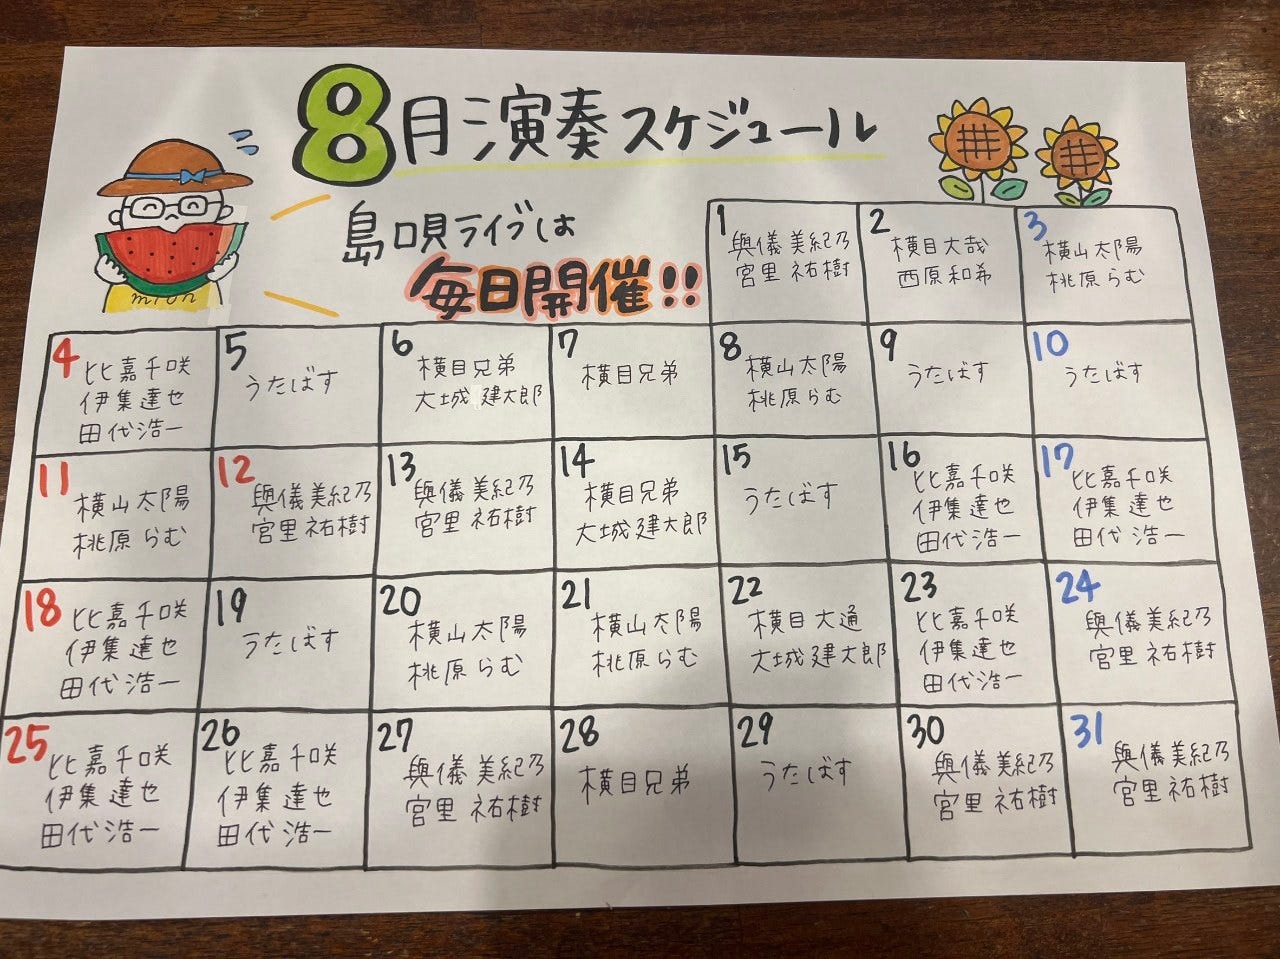 8月演奏スケジュール
島唄ライブは
毎日開催!!
mion
1
與儀 美紀乃
宮里 祐樹
2
横目大哉
西原和希
3
横山太陽
桃原らむ
4
比嘉千咲
伊集達也
田代浩一
5
うたばす
6
横目兄弟
大城 建太郎
7
横目兄弟
8
横山太陽
桃原らむ
9
うたばす
10
うたばす
11
横山太陽
桃原らむ
12
與儀美紀乃
宮里祐樹
13
與儀美紀乃
宮里祐樹
14
横目兄弟
大城建太郎
15
うたばす
16
比嘉千咲
伊集達也
田代浩一
17
比嘉千咲
伊集達也
田代浩一
18
比嘉千咲
伊集達也
田代浩一
19
うたばす
20
横山太陽
桃原らむ
21
横山太陽
桃原らむ
22
横目大通
大城建太郎
23
比嘉千咲
伊集達也
田代浩一
24
與儀美紀乃
宮里祐樹
25
比嘉千咲
伊集達也
田代浩一
26
比嘉千咲
伊集達也
田代浩一
27
與儀美紀乃
宮里祐樹
28
横目兄弟
29
うたばす
30
與儀美紀乃
宮里祐樹
31
與儀美紀乃
宮里祐樹